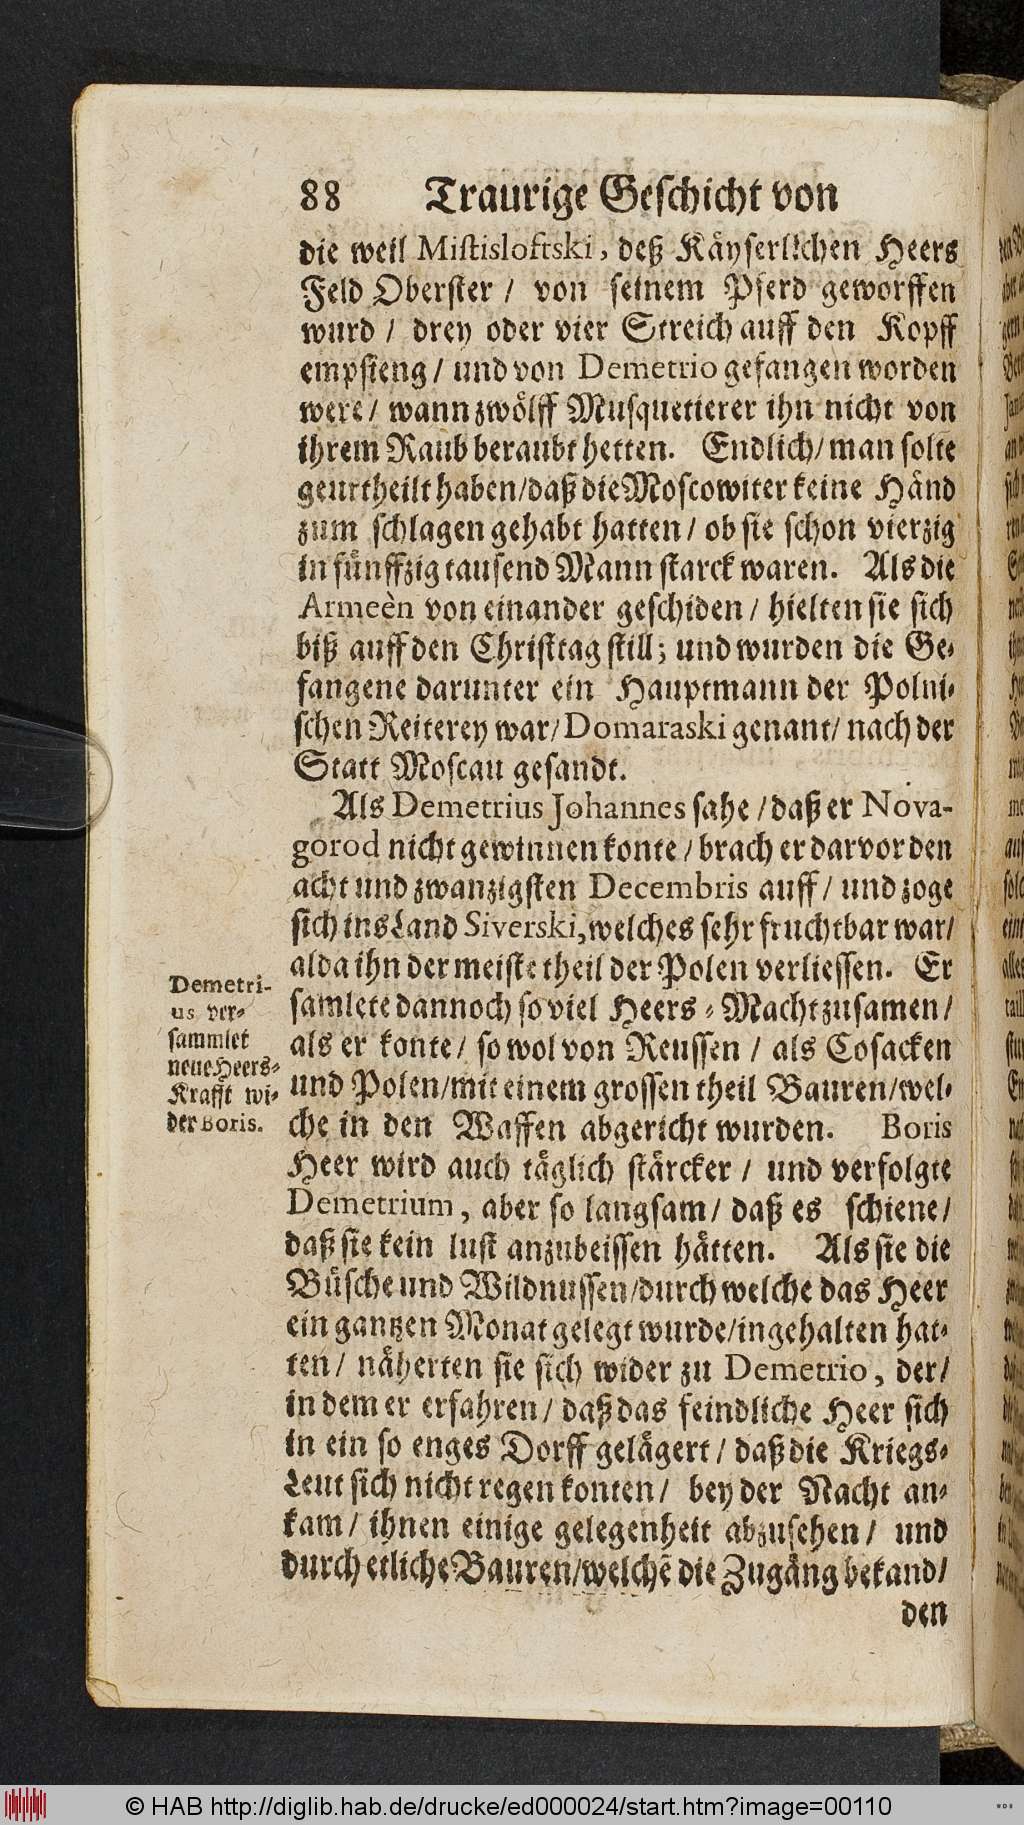 88 Traurige Geschicht von
die weil Mistisloftski, deß Käyserlichen Heers
Feld Oberster / von seinem Pferd geworffen
wurd / drey oder vier Streich auff den Kopff
empfieng / und von Demetrio gefangen worden
were / wann zwölff Musquetierer ihn nicht von
ihrem Raub beraubt hetten. Endlich / man solte
geurtheilt haben / daß die Moscowiter keine Händ
zum schlagen gehabt hatten / ob sie schon vierzig
in fünffzig tausend Mann starck waren. Als die
Armeèn von einander geschiden / hielten sie sich
biß auff den Christtag still; und wurden die Ge-
fangene darunter ein Hauptmann der Polni-
schen Reiterey war / Domaraski genant / nach der
Statt Moscau gesandt.
Als Demetrius Johannes sahe / daß er Nova-
gorod nicht gewinnen konte / brach er darvor den
acht und zwanzigsten Decembris auff / und zoge
sich ins Land Siverski, welches sehr fruchtbar war /
alda ihn der meiste theil der Polen verliessen. Er
samlete dannoch so viel Heers-Macht zusamen /
als er konte / so wol von Reussen / als Cosacken
und Polen / mit einem grossen theil Bauren / wel-
che in den Waffen abgericht wurden. Boris
Heer wird auch täglich stärcker / und verfolgte
Demetrium, aber so langsam / daß es schiene /
daß sie kein lust anzubeissen hätten. Als sie die
Büsche und Wildnussen / durch welche das Heer
ein gantzen Monat gelegt wurde / ingehalten hat-
ten / näherten sie sich wider zu Demetrio, der /
in dem er erfahren / daß das feindliche Heer sich
in ein so enges Dorff gelägert / daß die Kriegs-
Leut sich nicht regen konten / bey der Nacht an-
kam / ihnen einige gelegenheit abzusehen / und
durch etliche Bauren / welchẽ die Zugäng bekand /
den
Demetri-
us ver-
sammlet
neue Heers-
Krafft wi-
der Boris.
© HAB http://diglib.hab.de/drucke/ed000024/start.htm?image=00110